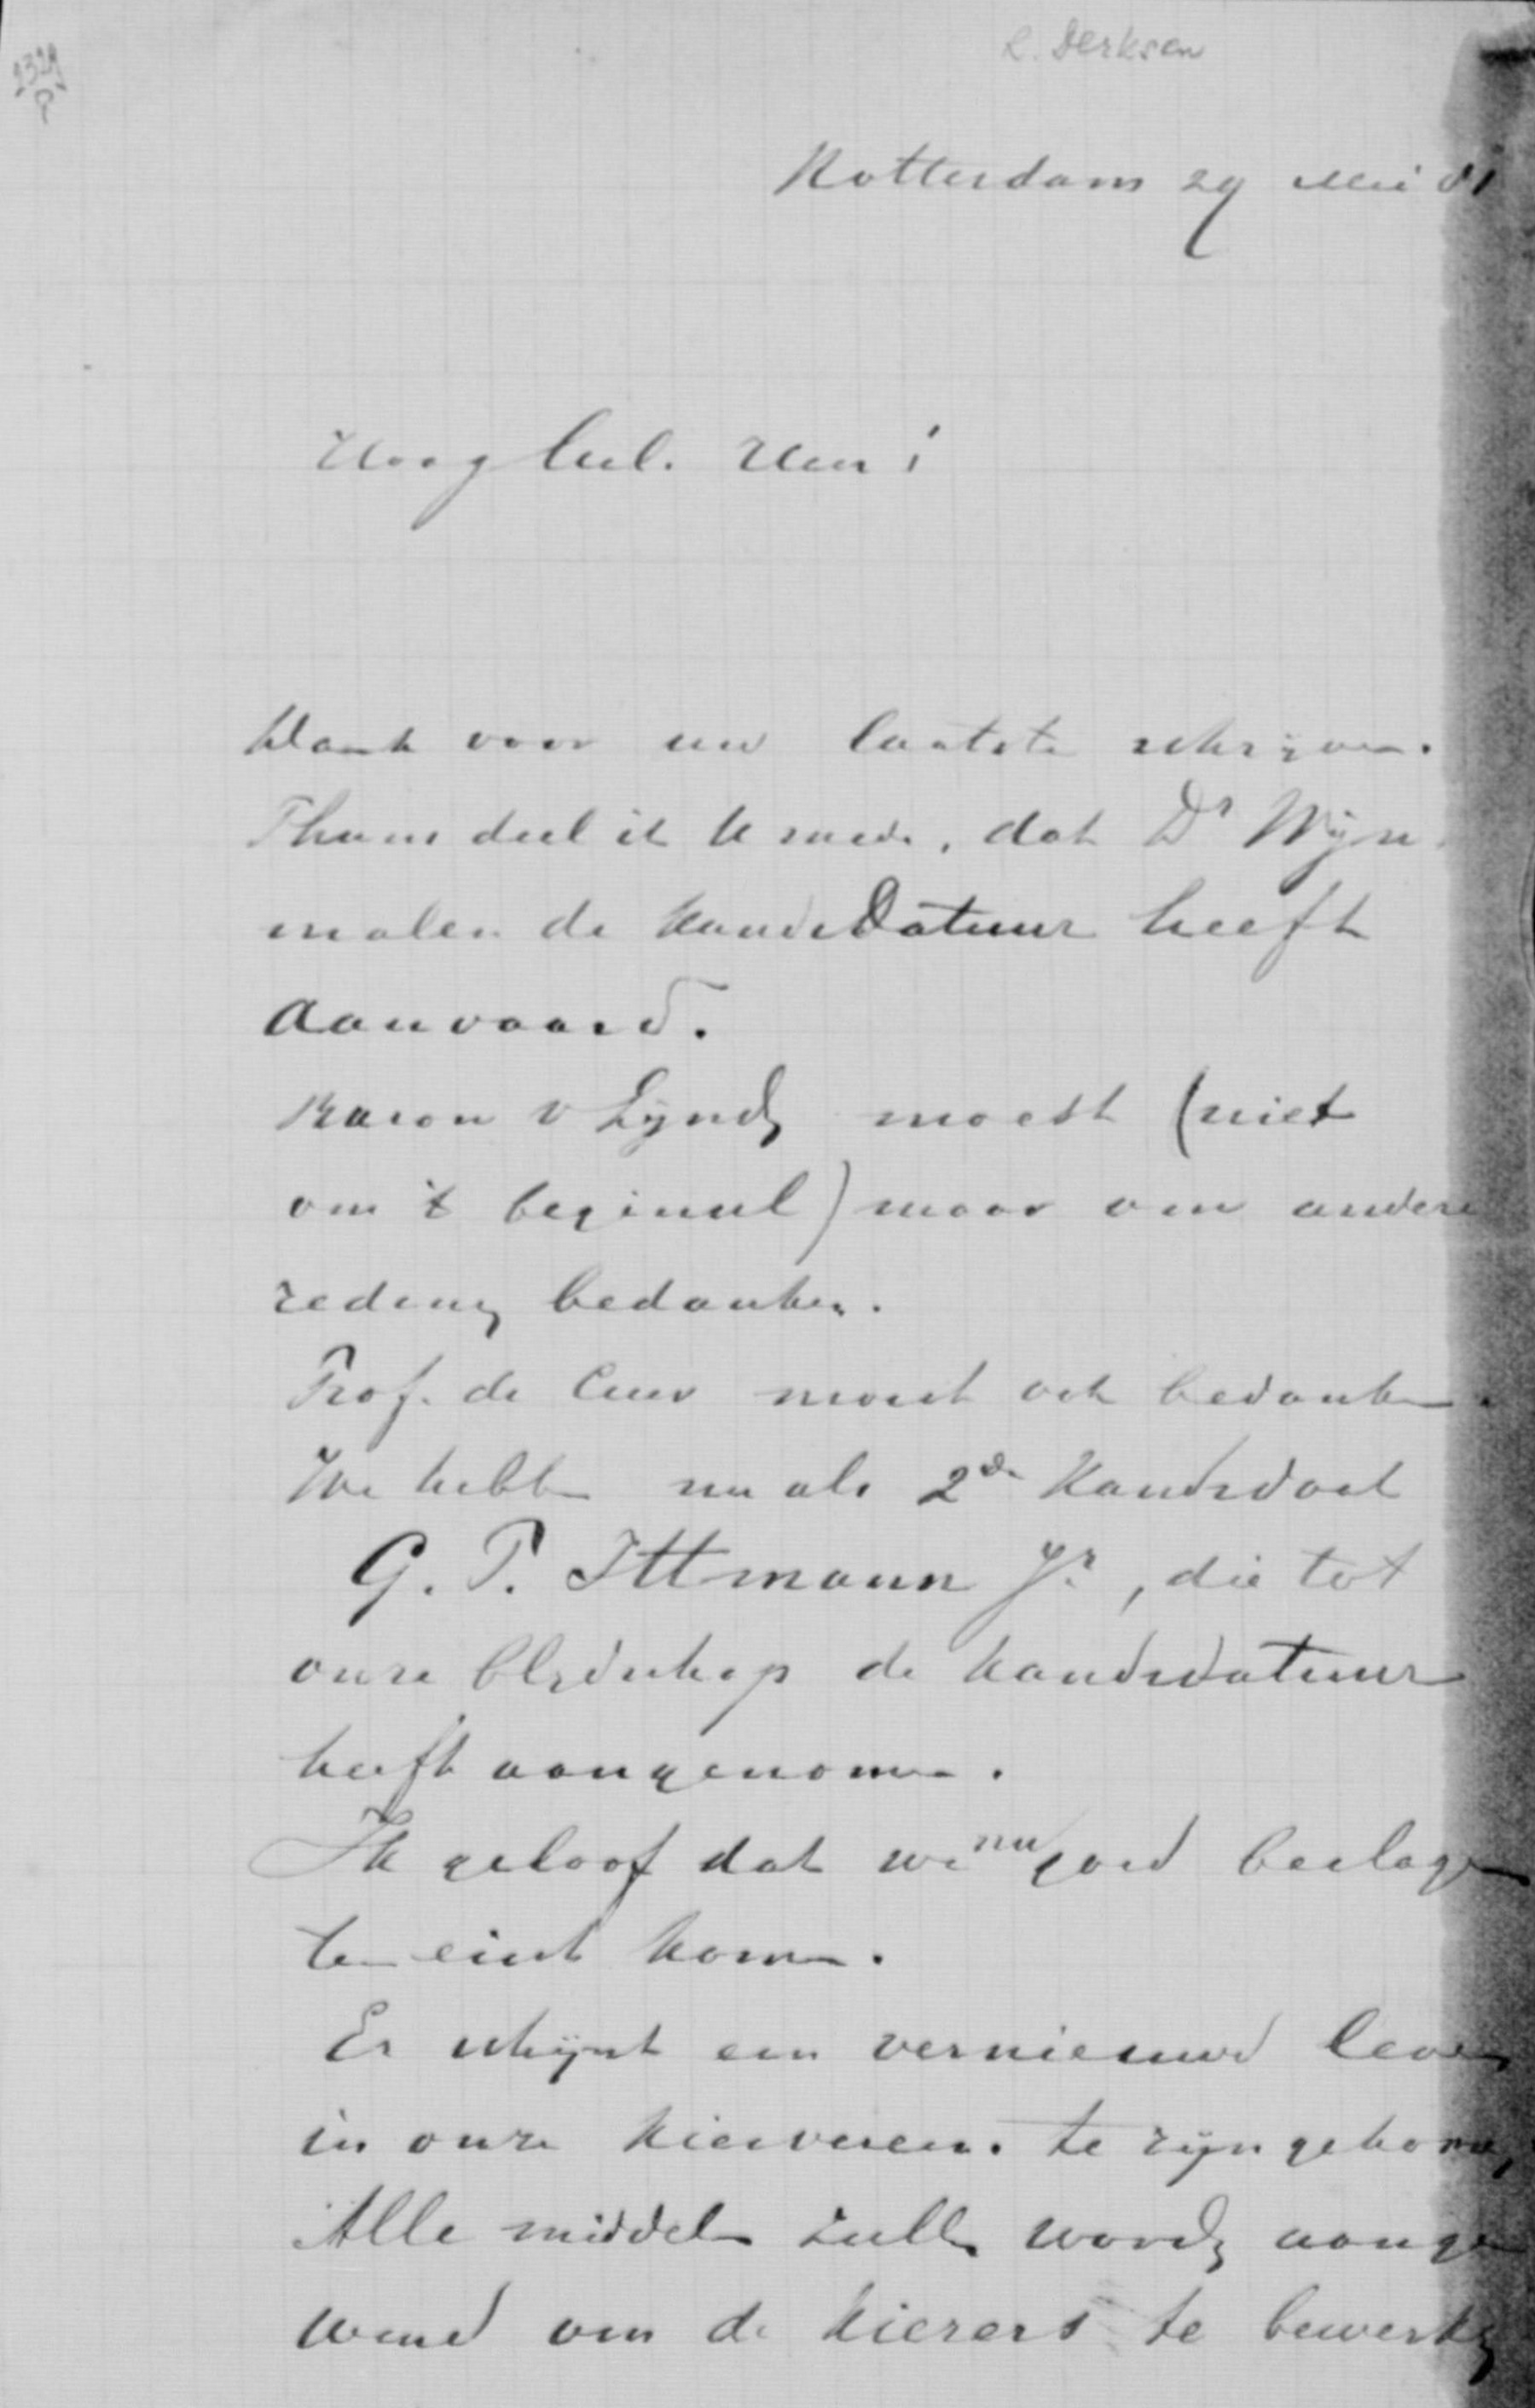 R. Derksen
Rotterdam 29 Mei 81
Hoog Eerl. Heer!
Dank voor uw laatste schrijven.
Thans deel ik U mede, dat Dr Wijn-
malen de kandidatuur heeft
aanvaard.
Baron v Lynden moest (niet
om 't beginsel) maar om andere
redenen bedanken.
Prof. de Geer moest ook bedanken.
We hebben nu als 2de kandidaat
G. P. Ittmann Jr, die tot
onze blijdschap de kandidatuur
heeft aangenomen.
Ik geloof dat we nu goed beslagen
ten eind komen.
Er schijnt een vernieuwd leven
in onze kiesvereen. te zijn gekomen,
Alle middelen zullen worden aange-
wend om de kiezers te bewerken